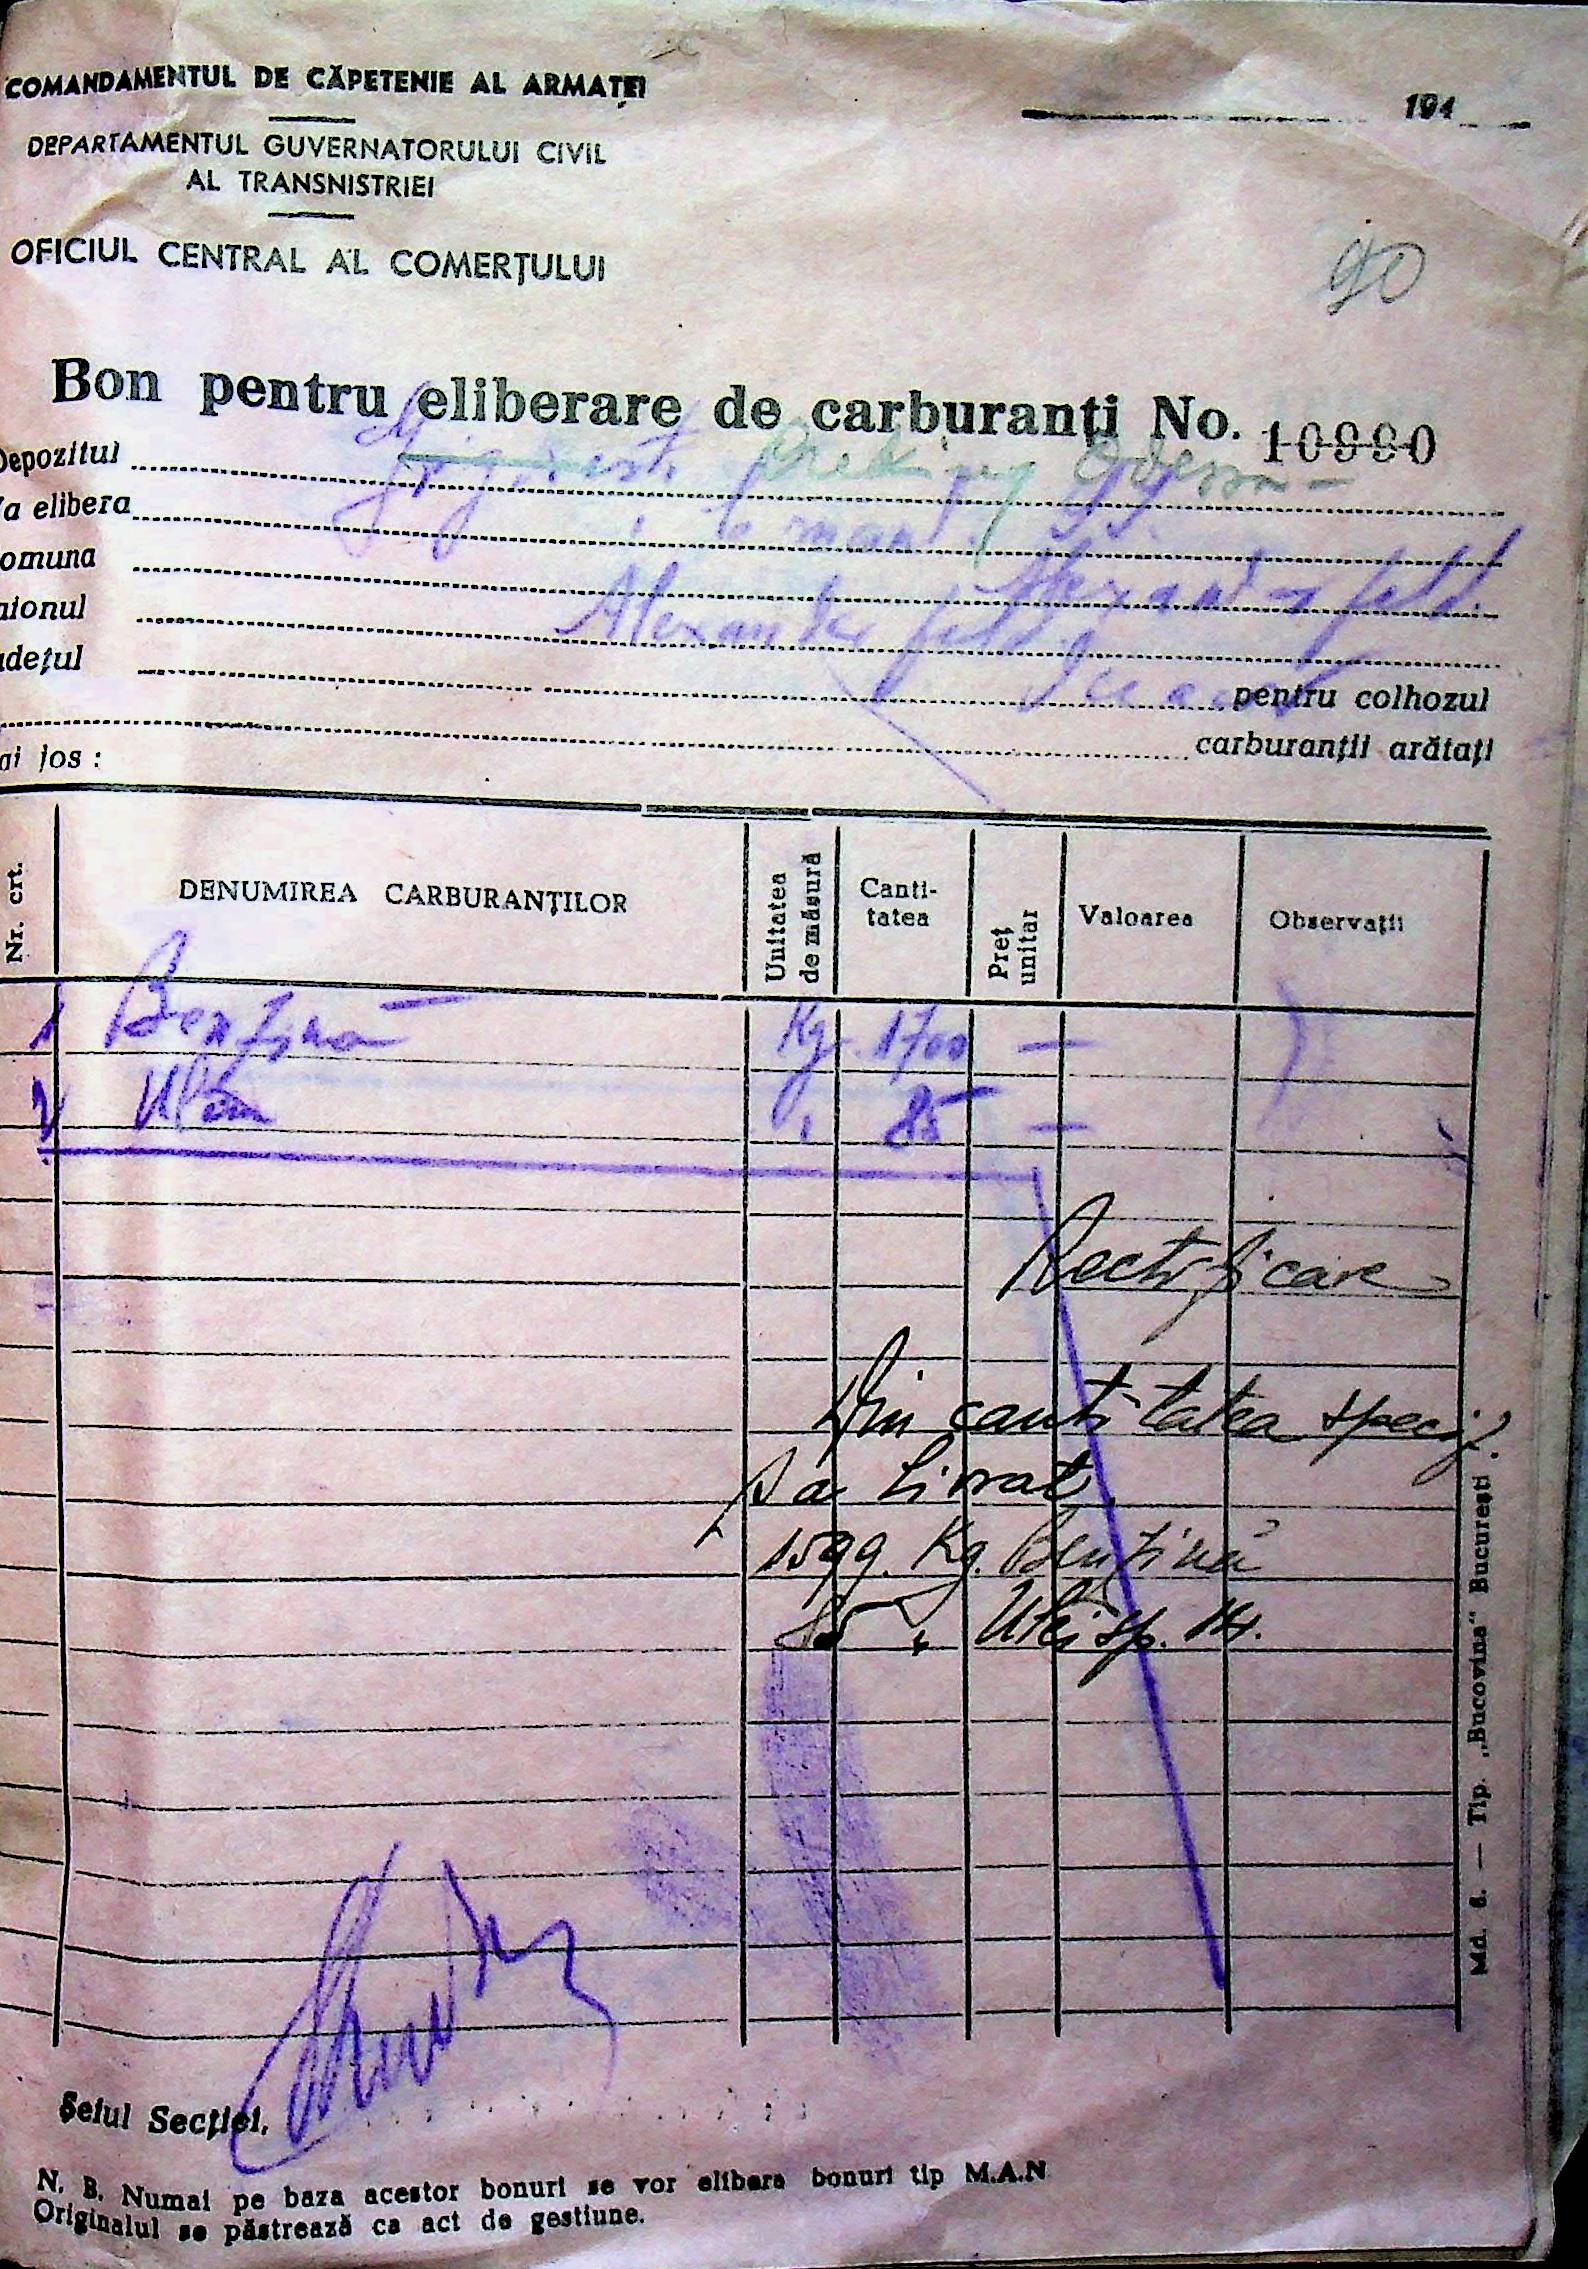 COMANDAMENTUL DE CĂPETENIE AL ARMATEI
194
DEPARTAMENTUL GUVERNATORULUI CIVIL
AL TRANSNISTRIEI
OFICIUL CENTRAL AL COMERȚULUI
90
Bon pentru eliberare de carburanți No. 10990
Depozitul Odessa
Va elibera
omuna Alexanderfeld
aionul Alexanderfeld
udețul pentru colhozul
carburanții arătați
ai jos :
Nr. crt. DENUMIREA CARBURANȚILOR Unitatea de măsură Canti-tatea Preț unitar Valoarea Observații
1 Benzină Kg. 1700 —
2 Ulei " 85 —
Rectificare
Din cantitatea specif.
s'a livrat
1599. Kg. Benzină
85 " Ulei sp. 14.
Md. 6. — Tip. „Bucovina" București
Șeful Secției,
N. B. Numai pe baza acestor bonuri se vor elibera bonuri tip M.A.N
Originalul se păstrează ca act de gestiune.